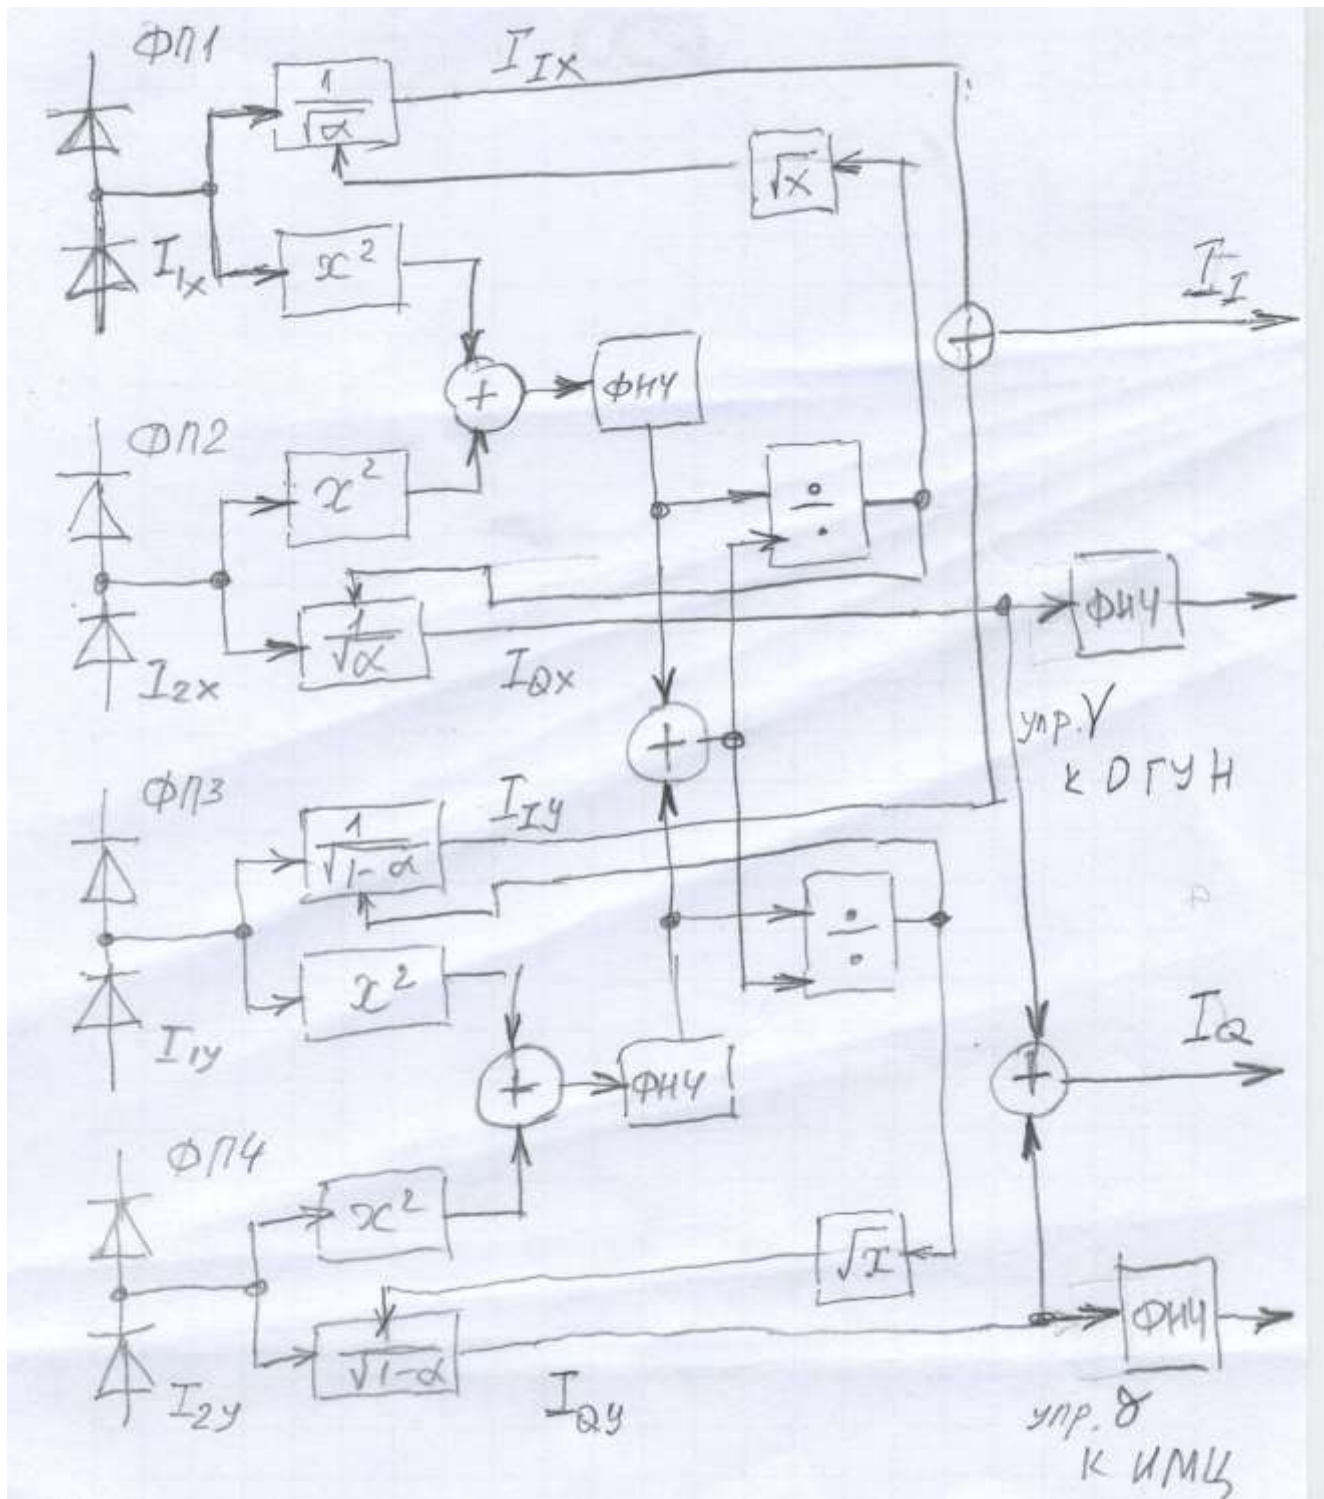 ФП1
1
√α
I_Ix
√x
I_1x
x²
I_I
+
+
ФНЧ
ФП2
x²
÷
ФНЧ
1
√α
I_2x
I_Qx
упр. γ
к ОГУН
+
ФП3
I_Iy
1
√1-α
÷
x²
I_1y
I_Q
+
ФНЧ
+
ФП4
x²
√x
ФНЧ
1
√1-α
I_2y
I_Qy
упр. γ
к ИМЦ